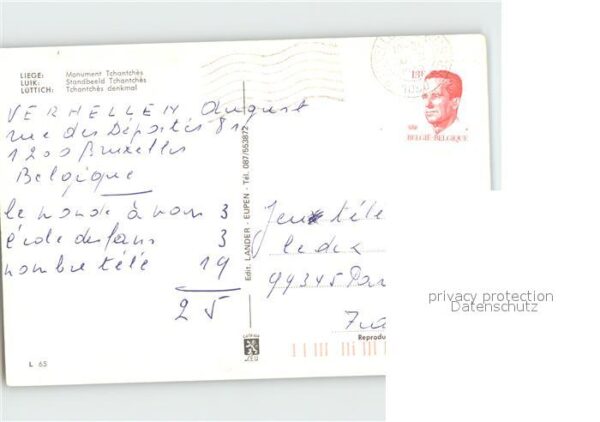 LIEGE: Monument Tchantchès
LUIK: Standbeeld Tchantchès
LUTTICH: Tchantchès denkmal
VERHELLEN August
rue des Déportés 81
1200 Bruxelles
Belgique
le monde à nous 3
école des fans 3
nombre télé 19
25
L 65
Edit. LANDER - EUPEN - Tél. 087/553872
13F
BELGIË-BELGIQUE
Jeux télé
99345 Par
Fra
Reprodu
privacy protection
Datenschutz